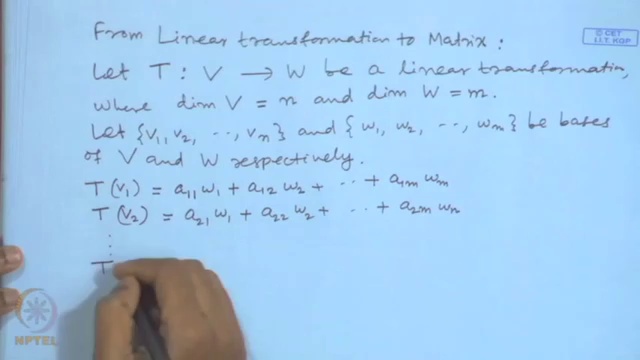 From Linear transformation to Matrix :
© CET
I.I.T. KGP
Let T : V → W be a linear transformation,
where dim V = n and dim W = m.
Let {v₁, v₂, ··, vₙ} and {w₁, w₂, ··, wₘ} be bases
of V and W respectively.
T(v₁) = a₁₁w₁ + a₁₂w₂ + ·· + a₁ₘwₘ
T(v₂) = a₂₁w₁ + a₂₂w₂ + ·· + a₂ₘwₙ
⋮
T
NPTEL